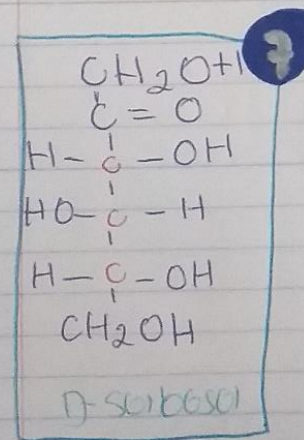 7
CH2OH
C = O
H - C - OH
HO - C - H
H - C - OH
CH2OH
D-sorbosa